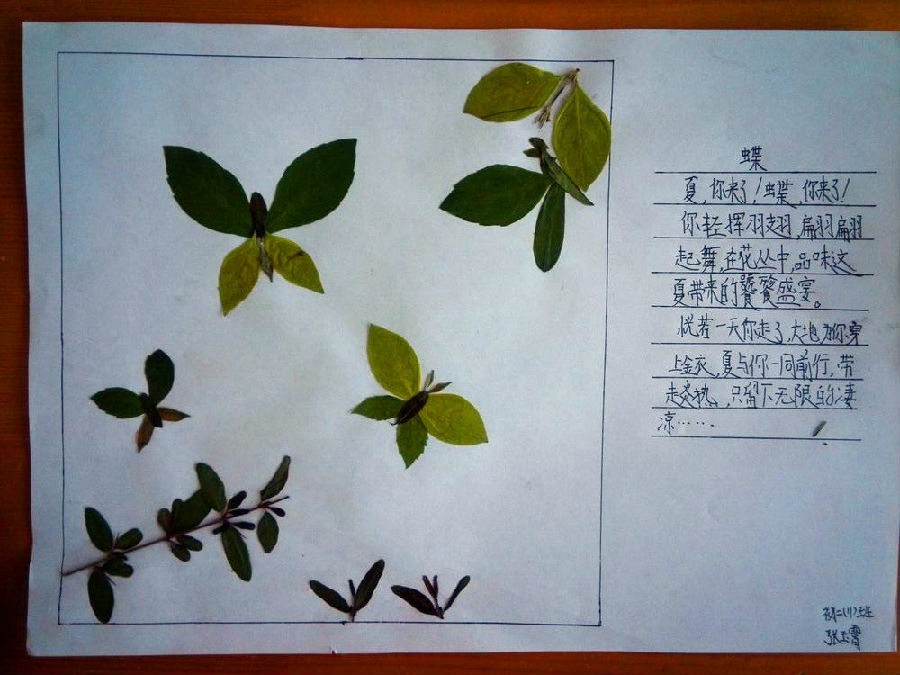 蝶
夏,你来了!蝶,你来了!
你轻挥羽翅,扁羽扁羽
起舞,在花丛中,品味这
夏带来的饕餮盛宴。
恍若一天你走了,大地为你穿
上金衣,夏与你一同前行,带
走炎热,只留下无限的凄
凉……
初二(1)班
张玉霄